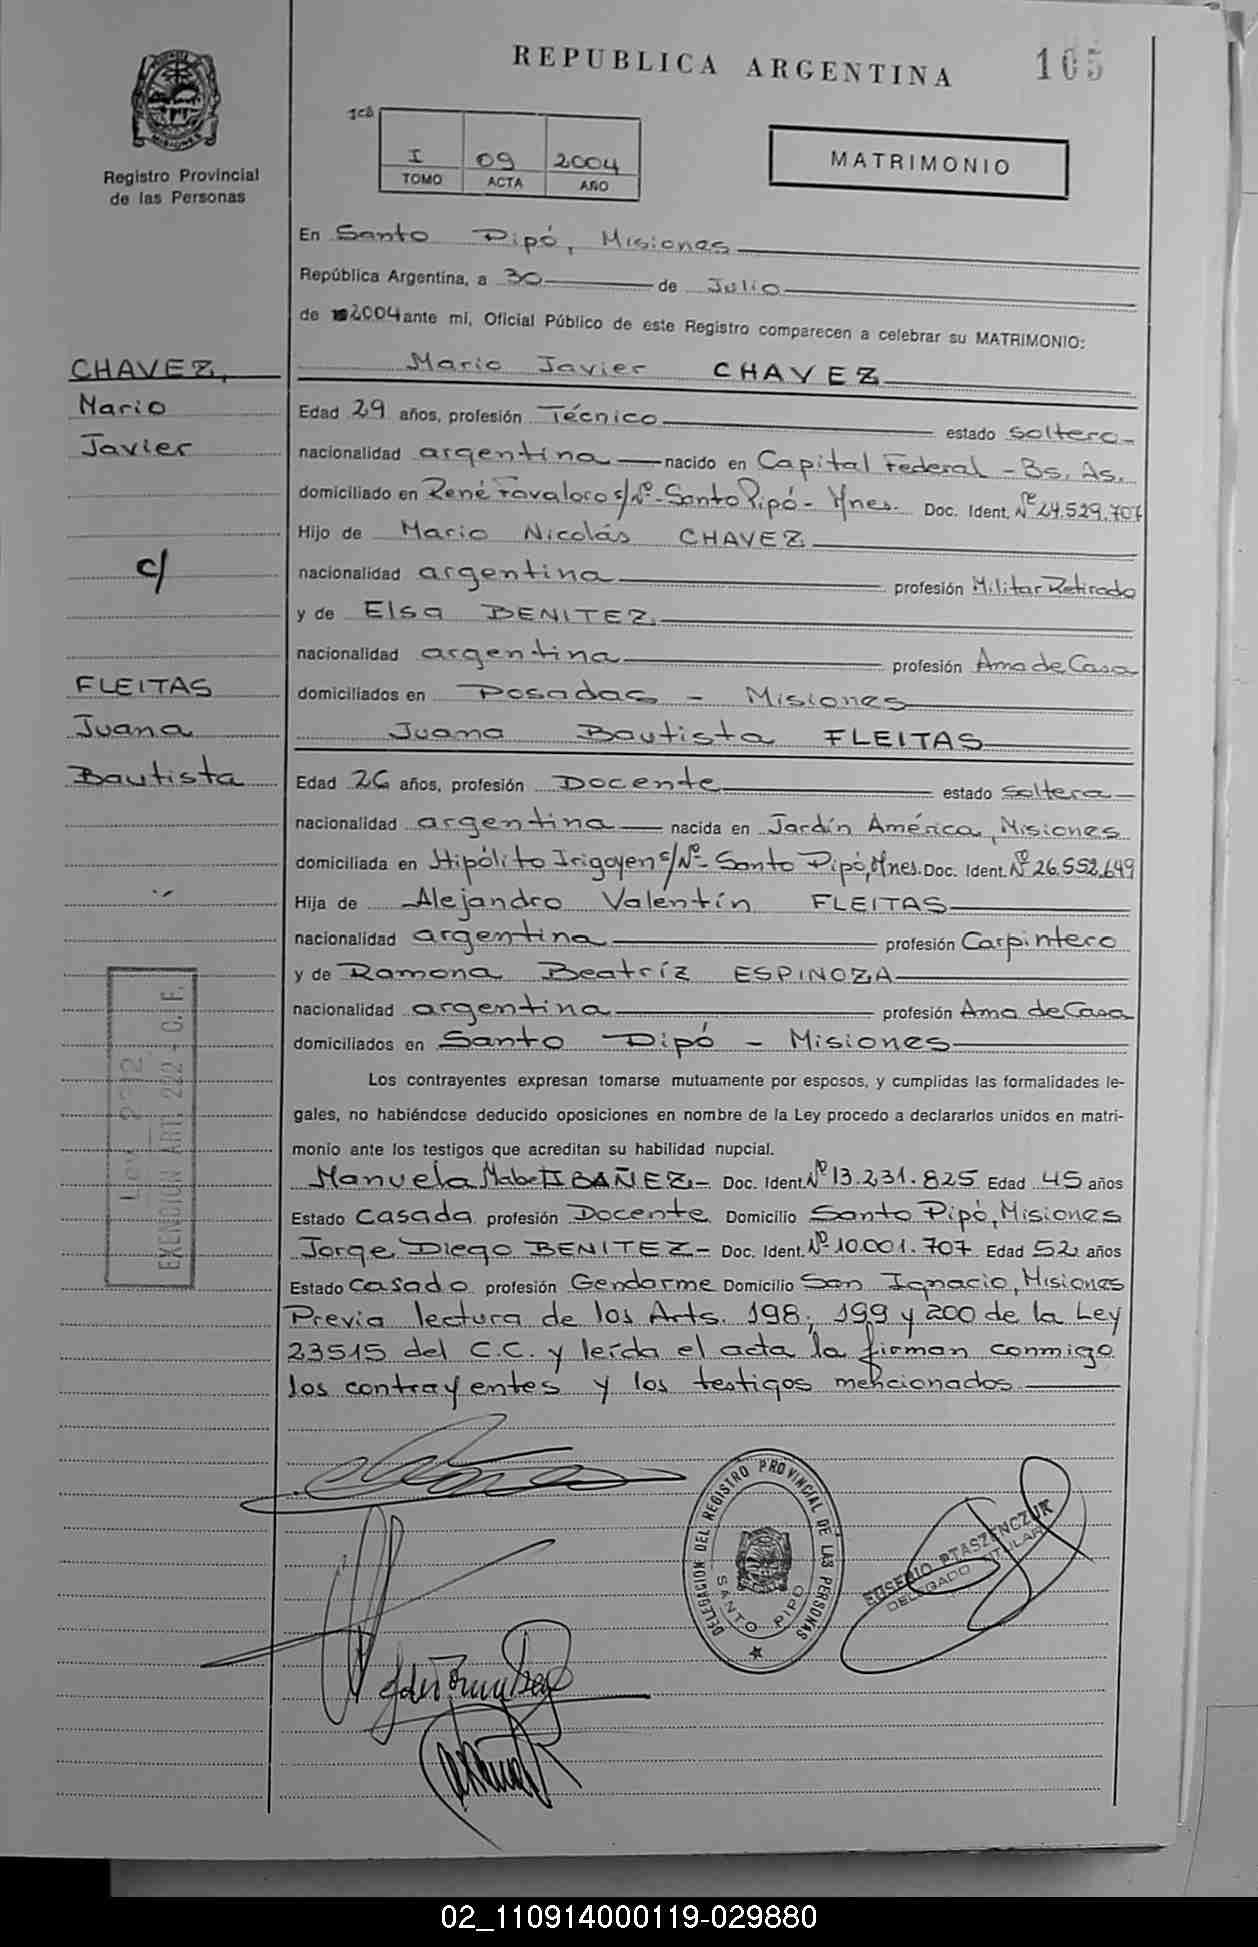 REPUBLICA ARGENTINA
165
MISIONES
Registro Provincial
de las Personas
I 09 2004
TOMO ACTA AÑO
MATRIMONIO
En Santo Pipó, Misiones
República Argentina, a 30 de Julio
de 2004 ante mí, Oficial Público de este Registro comparecen a celebrar su MATRIMONIO:
CHAVEZ,
Mario
Javier
c/
FLEITAS
Juana
Bautista
Mario Javier CHAVEZ
Edad 29 años, profesión Técnico estado soltero
nacionalidad argentina nacido en Capital Federal - Bs. As.
domiciliado en René Favaloro s/Nº - Santo Pipó - Mnes. Doc. Ident. Nº 24.529.707
Hijo de Mario Nicolás CHAVEZ
nacionalidad argentina profesión Militar Retirado
y de Elsa BENITEZ
nacionalidad argentina profesión Ama de Casa
domiciliados en Posadas - Misiones
Juana Bautista FLEITAS
Edad 26 años, profesión Docente estado soltera
nacionalidad argentina nacida en Jardín América, Misiones
domiciliada en Hipólito Irigoyen s/Nº - Santo Pipó, Mnes. Doc. Ident. Nº 26.552.649
Hija de Alejandro Valentín FLEITAS
nacionalidad argentina profesión Carpintero
y de Ramona Beatríz ESPINOZA
nacionalidad argentina profesión Ama de Casa
domiciliados en Santo Pipó - Misiones
Los contrayentes expresan tomarse mutuamente por esposos, y cumplidas las formalidades le-
gales, no habiéndose deducido oposiciones en nombre de la Ley procedo a declararlos unidos en matri-
monio ante los testigos que acreditan su habilidad nupcial.
Manuela Mabel IBAÑEZ - Doc. Ident. Nº 13.231.825 Edad 45 años
Estado Casada profesión Docente Domicilio Santo Pipó, Misiones
Jorge Diego BENITEZ - Doc. Ident. Nº 10.001.707 Edad 52 años
Estado casado profesión Gendarme Domicilio San Ignacio, Misiones
Previa lectura de los Arts. 198, 199 y 200 de la Ley
23515 del C.C. y leída el acta la firman conmigo
los contrayentes y los testigos mencionados
EXENCION ART. 222 - C. F.
DELEGACION DEL REGISTRO PROVINCIAL DE LAS PERSONAS
SANTO PIPO
EUSEBIO PTASZENCZUK
DELEGADO TITULAR
02_110914000119-029880